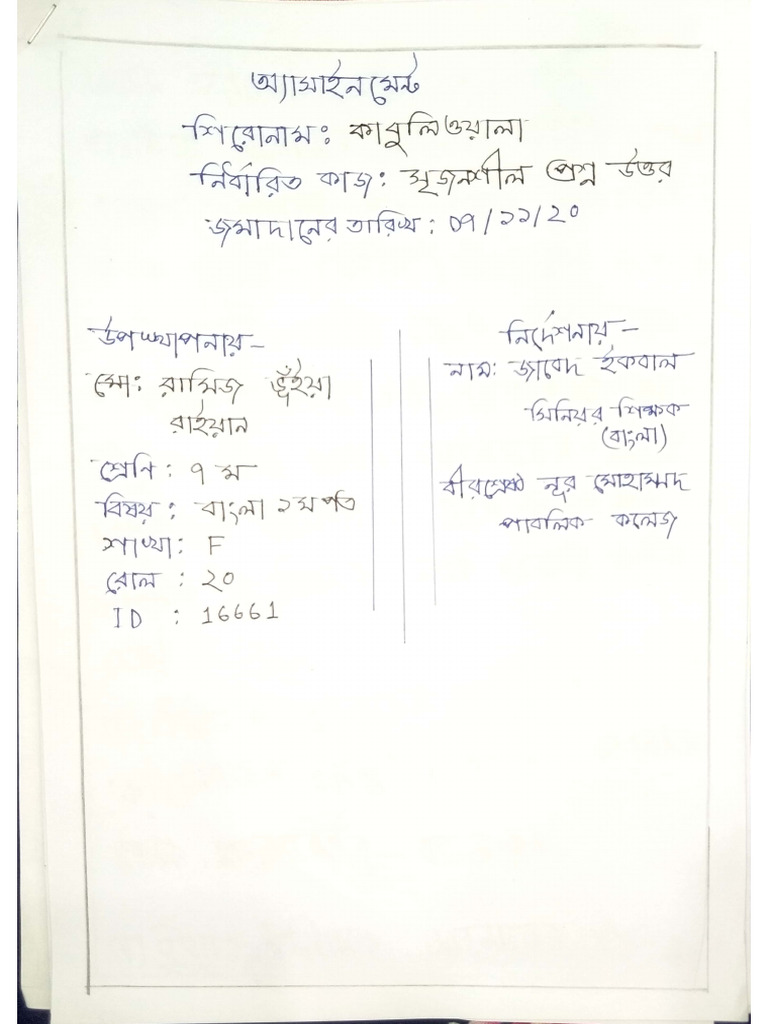 অ্যাসাইনমেন্ট
শিরোনাম: কাবুলিওয়ালা
নির্ধারিত কাজ: সৃজনশীল প্রশ্ন উত্তর
জমাদানের তারিখ: ০৭/১১/২০
উপস্থাপনায়-
মো: রামিজ ভূঁইয়া
রাইয়ান
শ্রেণি: ৭ম
বিষয়: বাংলা ১ম পত্র
শাখা: F
রোল: ২০
ID : 16661
নির্দেশনায়-
নাম: জাবেদ ইকবাল
সিনিয়র শিক্ষক
(বাংলা)
বীরশ্রেষ্ঠ নূর মোহাম্মদ
পাবলিক কলেজ